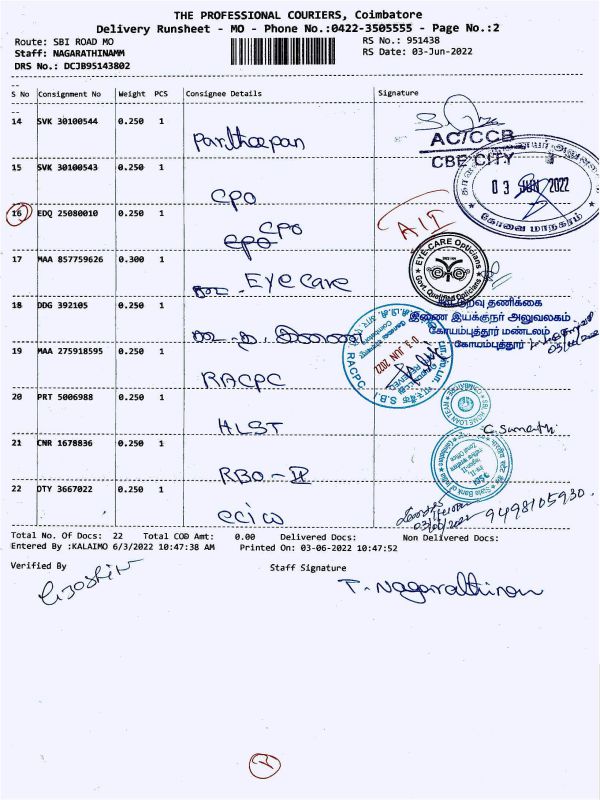 THE PROFESSIONAL COURIERS, Coimbatore
Delivery Runsheet - MO - Phone No.:0422-3505555 - Page No.:2
Route: SBI ROAD MO
RS No.: 951438
Staff: NAGARATHINAMM
RS Date: 03-Jun-2022
DRS No.: DCJB95143802
S No Consignment No Weight PCS Consignee Details Signature
14 SVK 30100544 0.250 1
AC/CCB
CBE CITY
03 JUN 2022
கோவை மாநகரம்
15 SVK 30100543 0.250 1
CPO
16 EDQ 25080010 0.250 1
CPO
EYE-CARE Opticians
Govt. Qualified Opticians
17 MAA 857759626 0.300 1
Eye care
18 DDG 392105 0.250 1
தணிக்கை
இணை இயக்குநர் அலுவலகம்
கோயம்புத்தூர் மண்டலம்
கோயம்புத்தூர்
19 MAA 275918595 0.250 1
RACPC
RACPC
S.B.I.
RECEIVED
03 JUN 2022
20 PRT 5006988 0.250 1
HLST
C. Sumathi
21 CNR 1678836 0.250 1
RBO - II
State Bank of India
22 DTY 3667022 0.250 1
9498105930.
Total No. Of Docs: 22 Total COD Amt: 0.00 Delivered Docs: Non Delivered Docs:
Entered By :KALAIMO 6/3/2022 10:47:38 AM Printed On: 03-06-2022 10:47:52
Verified By Staff Signature
T. Nagarathinam